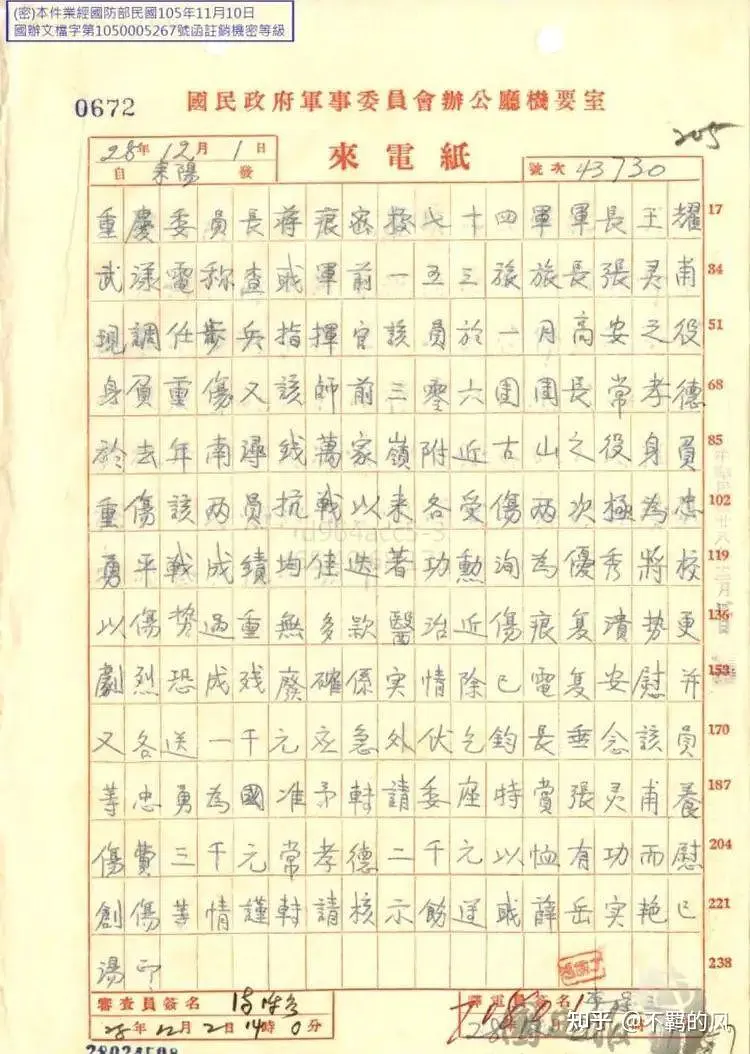 (密)本件業經國防部民國105年11月10日
國辦文檔字第1050005267號函註銷機密等級
0672
國民政府軍事委員會辦公廳機要室
205
28年12月1日
自耒陽發
來電紙
號次43730
重慶委員長蔣痕密據七十四軍軍長王耀 17
武漾電称查戓軍前一五三旅旅長張灵甫 34
現調任步兵指揮官該員於一月高安之役 51
身負重傷又該師前三零六團團長常孝德 68
於去年南潯线萬家嶺附近古山之役身負 85
重傷該两員抗戰以来各受傷两次極為忠 102
勇平戰成績均佳迭著功勳洵為優秀將校 119
以傷势過重無多款醫治近傷痕复潰势更 136
劇烈恐成残廢確係实情除已電复安慰并 153
又各送一千元应急外伏乞鈞長垂念該員 170
等忠勇為國准予轉請委座特賞張灵甫養 187
傷費三千元常孝德二千元以恤有功而慰 204
創傷等情謹轉請核示飭遵戓薛岳实艳巳 221
湯印 238
審查員簽名
28年12月2日14時0分
譯電員簽名
知乎 @不羁的风